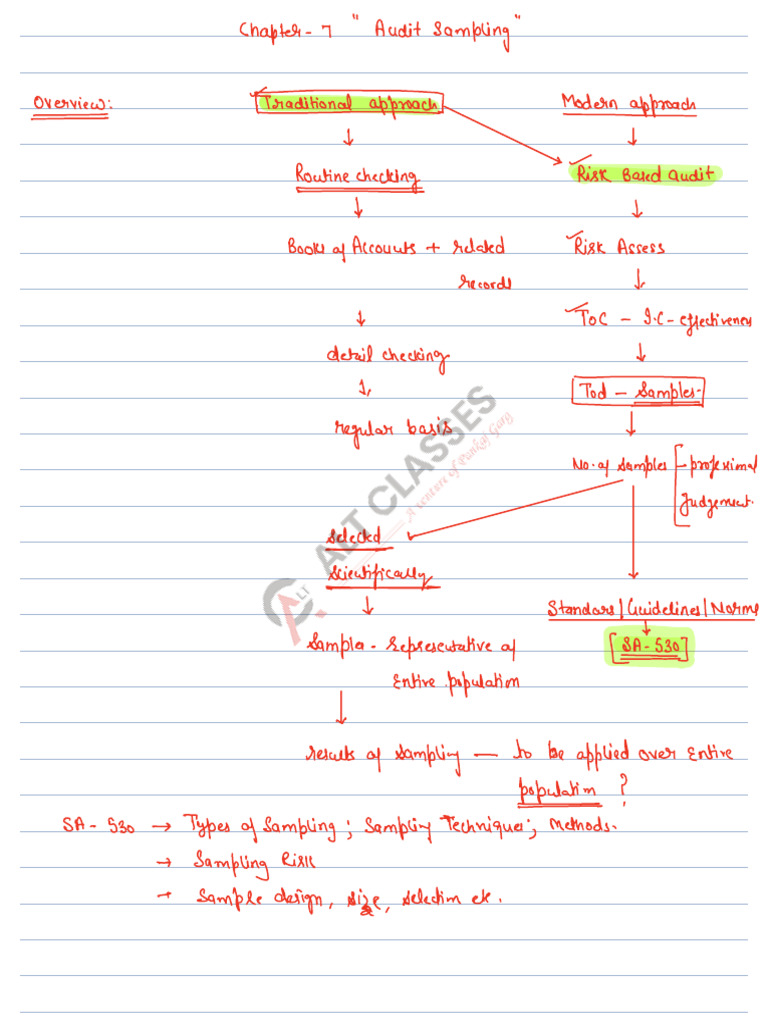 Chapter - 7 " Audit Sampling "
Overview: Traditional approach Modern approach
Routine checking Risk Based audit
Books of Accounts + related Risk Assess
records
ToC - I.C - effectiveness
detail checking
Tod - Samples -
regular basis
No. of samples - professional
Judgement.
Selected
Scientifically
Standars / Guidelines / Norms
Samples - Representative of [ SA - 530 ]
Entire population
results of sampling - to be applied over Entire
population ?
SA - 530 → Types of Sampling ; Sampling Techniques ; Methods.
→ Sampling Risk
→ Sample design, size, selection etc.
ALT CLASSES
A venture of Pankaj Garg
LT